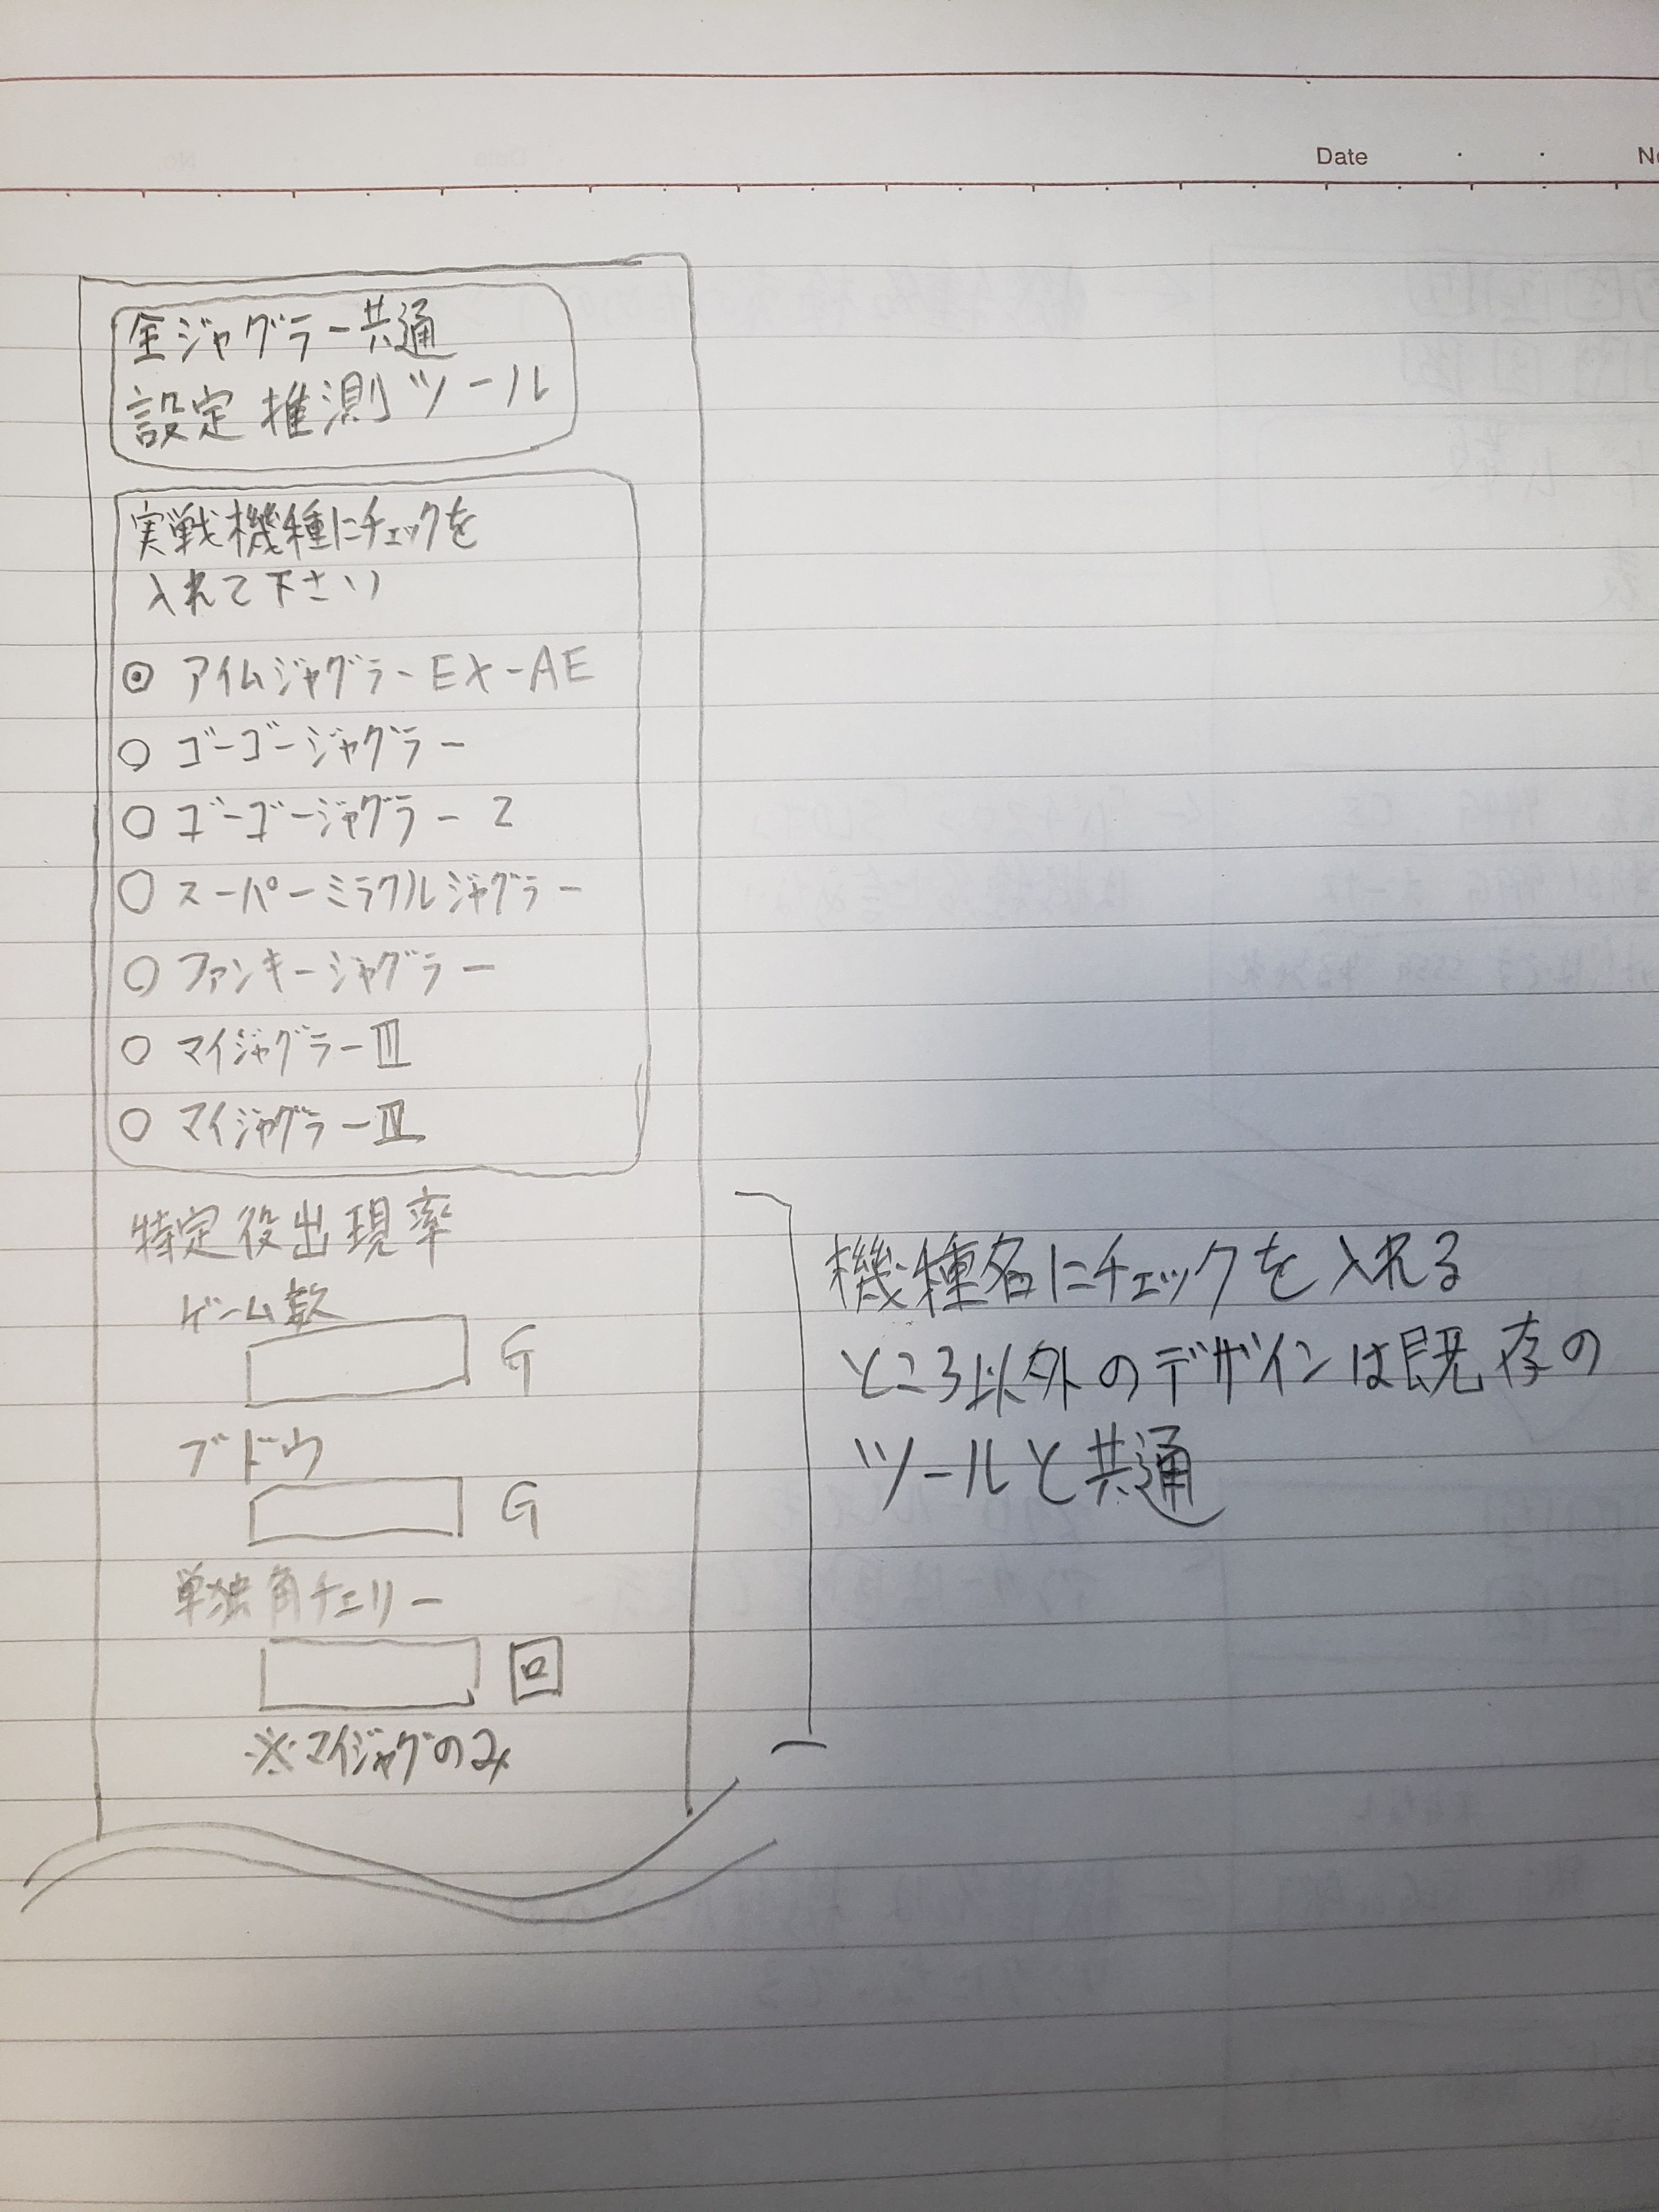 Date
全ジャグラー共通
設定推測ツール
実戦機種にチェックを
入れて下さい
アイムジャグラーEX-AE
ゴーゴージャグラー
ゴーゴージャグラー2
スーパーミラクルジャグラー
ファンキージャグラー
マイジャグラーⅢ
マイジャグラーⅣ
特定役出現率
ゲーム数
G
ブドウ
G
単独角チェリー
回
※マイジャグのみ
機種名にチェックを入れる
ところ以外のデザインは既存の
ツールと共通